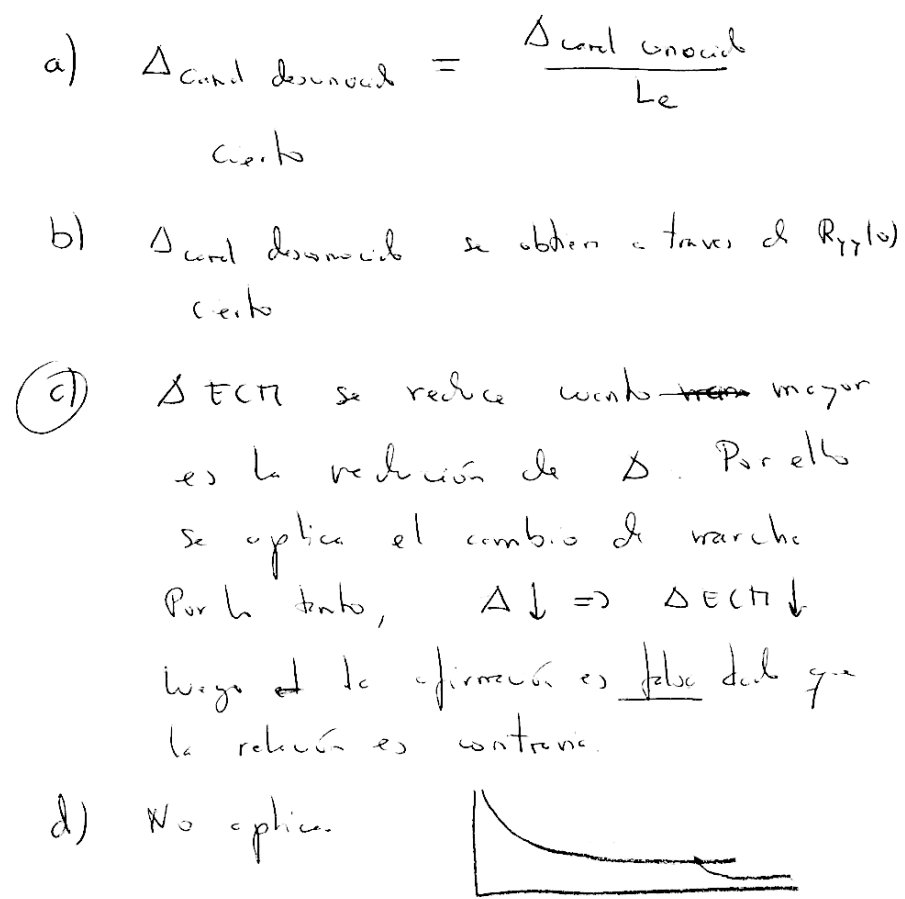 a) Δ canal desconocido = Δ canal conocido / Le
cierto
b) Δ canal desconocido se obtiene a traves de Ryy(0)
cierto
c) Δ ECM se reduce cuanto mayor
es la reducción de Δ. Por ello
se aplica el cambio de marcha
Por lo tanto, Δ↓ => Δ ECM↓
luego la afirmación es falsa dado que
la relación es contraria.
d) No aplica.